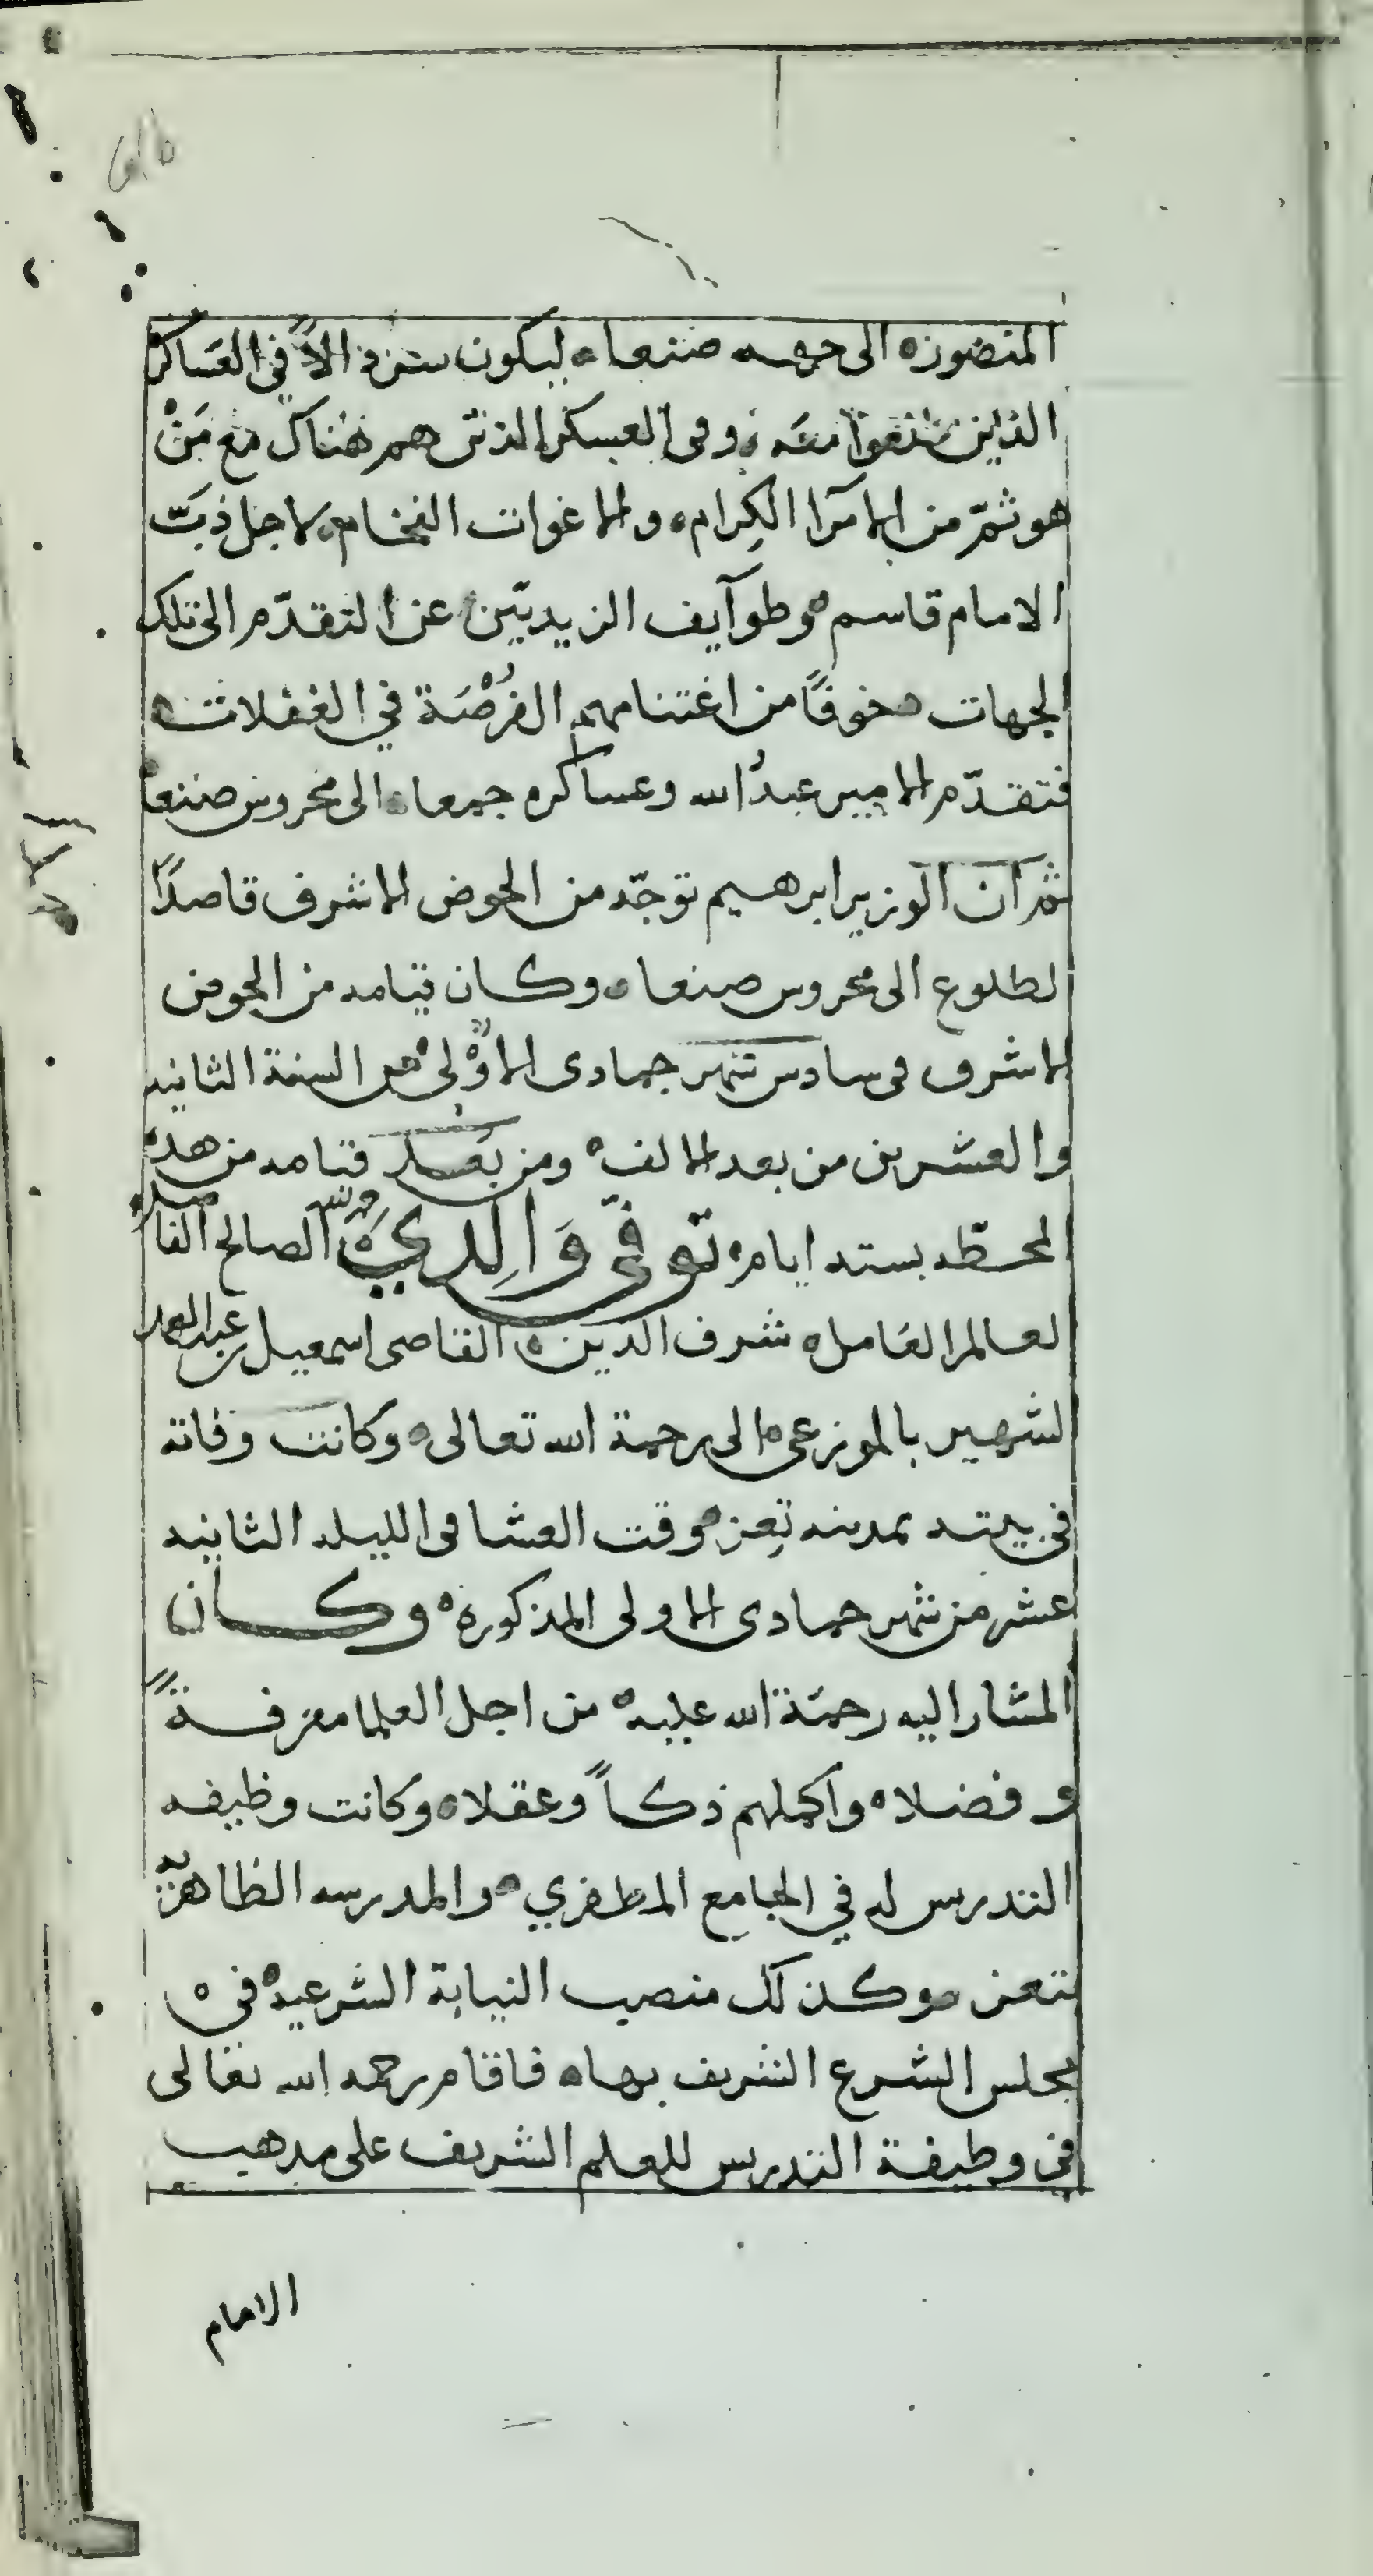 المنصوره الى جهه صنعاء ليكون سردالاً في العساكر
الذين معه وفى العسكر الذين هم هناك مع مَنْ
هو ثمّ من الامرآا الكِرام والاغوات الفخام لاجل ذبّ
الامام قاسم وطوآيف الزيديّين عن التقدّم الى تلك
الجهات خوفًا من اغتنامهم الفُرْصَة في الغفلات
فتقدّم الامير عبدُ الله وعساكره جميعا الى محروس صنعا
ثم ان الوزير ابرهيم توجّه من الحوض الاشرف قاصدًا
لطلوع الى محروس صنعاء وكان قيامه من الحوض
الاشرف فى سادس شهر جمادى الاوْلى من السنة الثانيه
والعشرين من بعد الالف ومن بَعْد قيامه من هذه
المحطّه بسته ايام توفّي وَالِدي الصالح الفاضل
لعالم العَامل شرف الدين القاضى اسمعيل بن عبد الصمد
لشهير بالموزعى الى رحمة الله تعالى وكانت وفاته
في بيته بمدينه تعِز وقت العشا فى الليله الثانيه
عشر من شهر جمادى الاولى المذكوره وكان
المشار اليه رحمَة الله عليه من اجل العلما معرفةً
وفضلا واكملهم ذكاً وعقلا وكانت وظيفه
التدريس له في الجامع المظفري والمدرسه الظاهريّه
بتعز وكذلك منصب النيابة الشرعيه في
مجلس الشرع الشريف بها فاقام رحمه الله تعالى
في وظيفة التدريس للعلم الشريف على مذهب
الامام